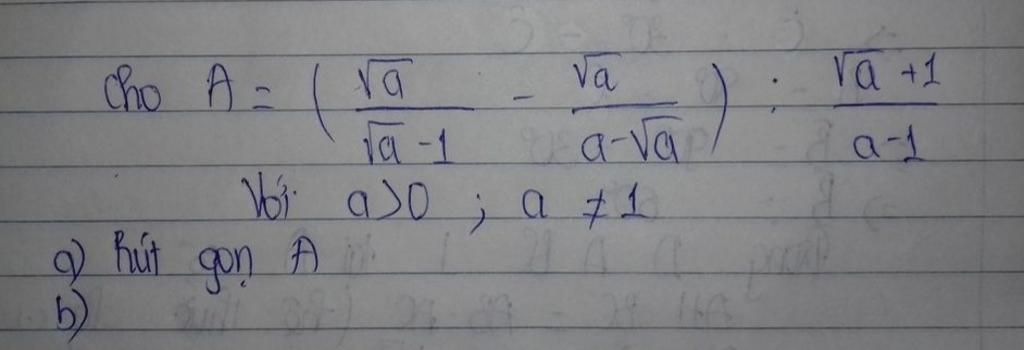 Cho A = ( √a / (√a - 1) - √a / (a - √a) ) : (√a + 1) / (a - 1)
Với a > 0 ; a ≠ 1
a) Rút gọn A
b)